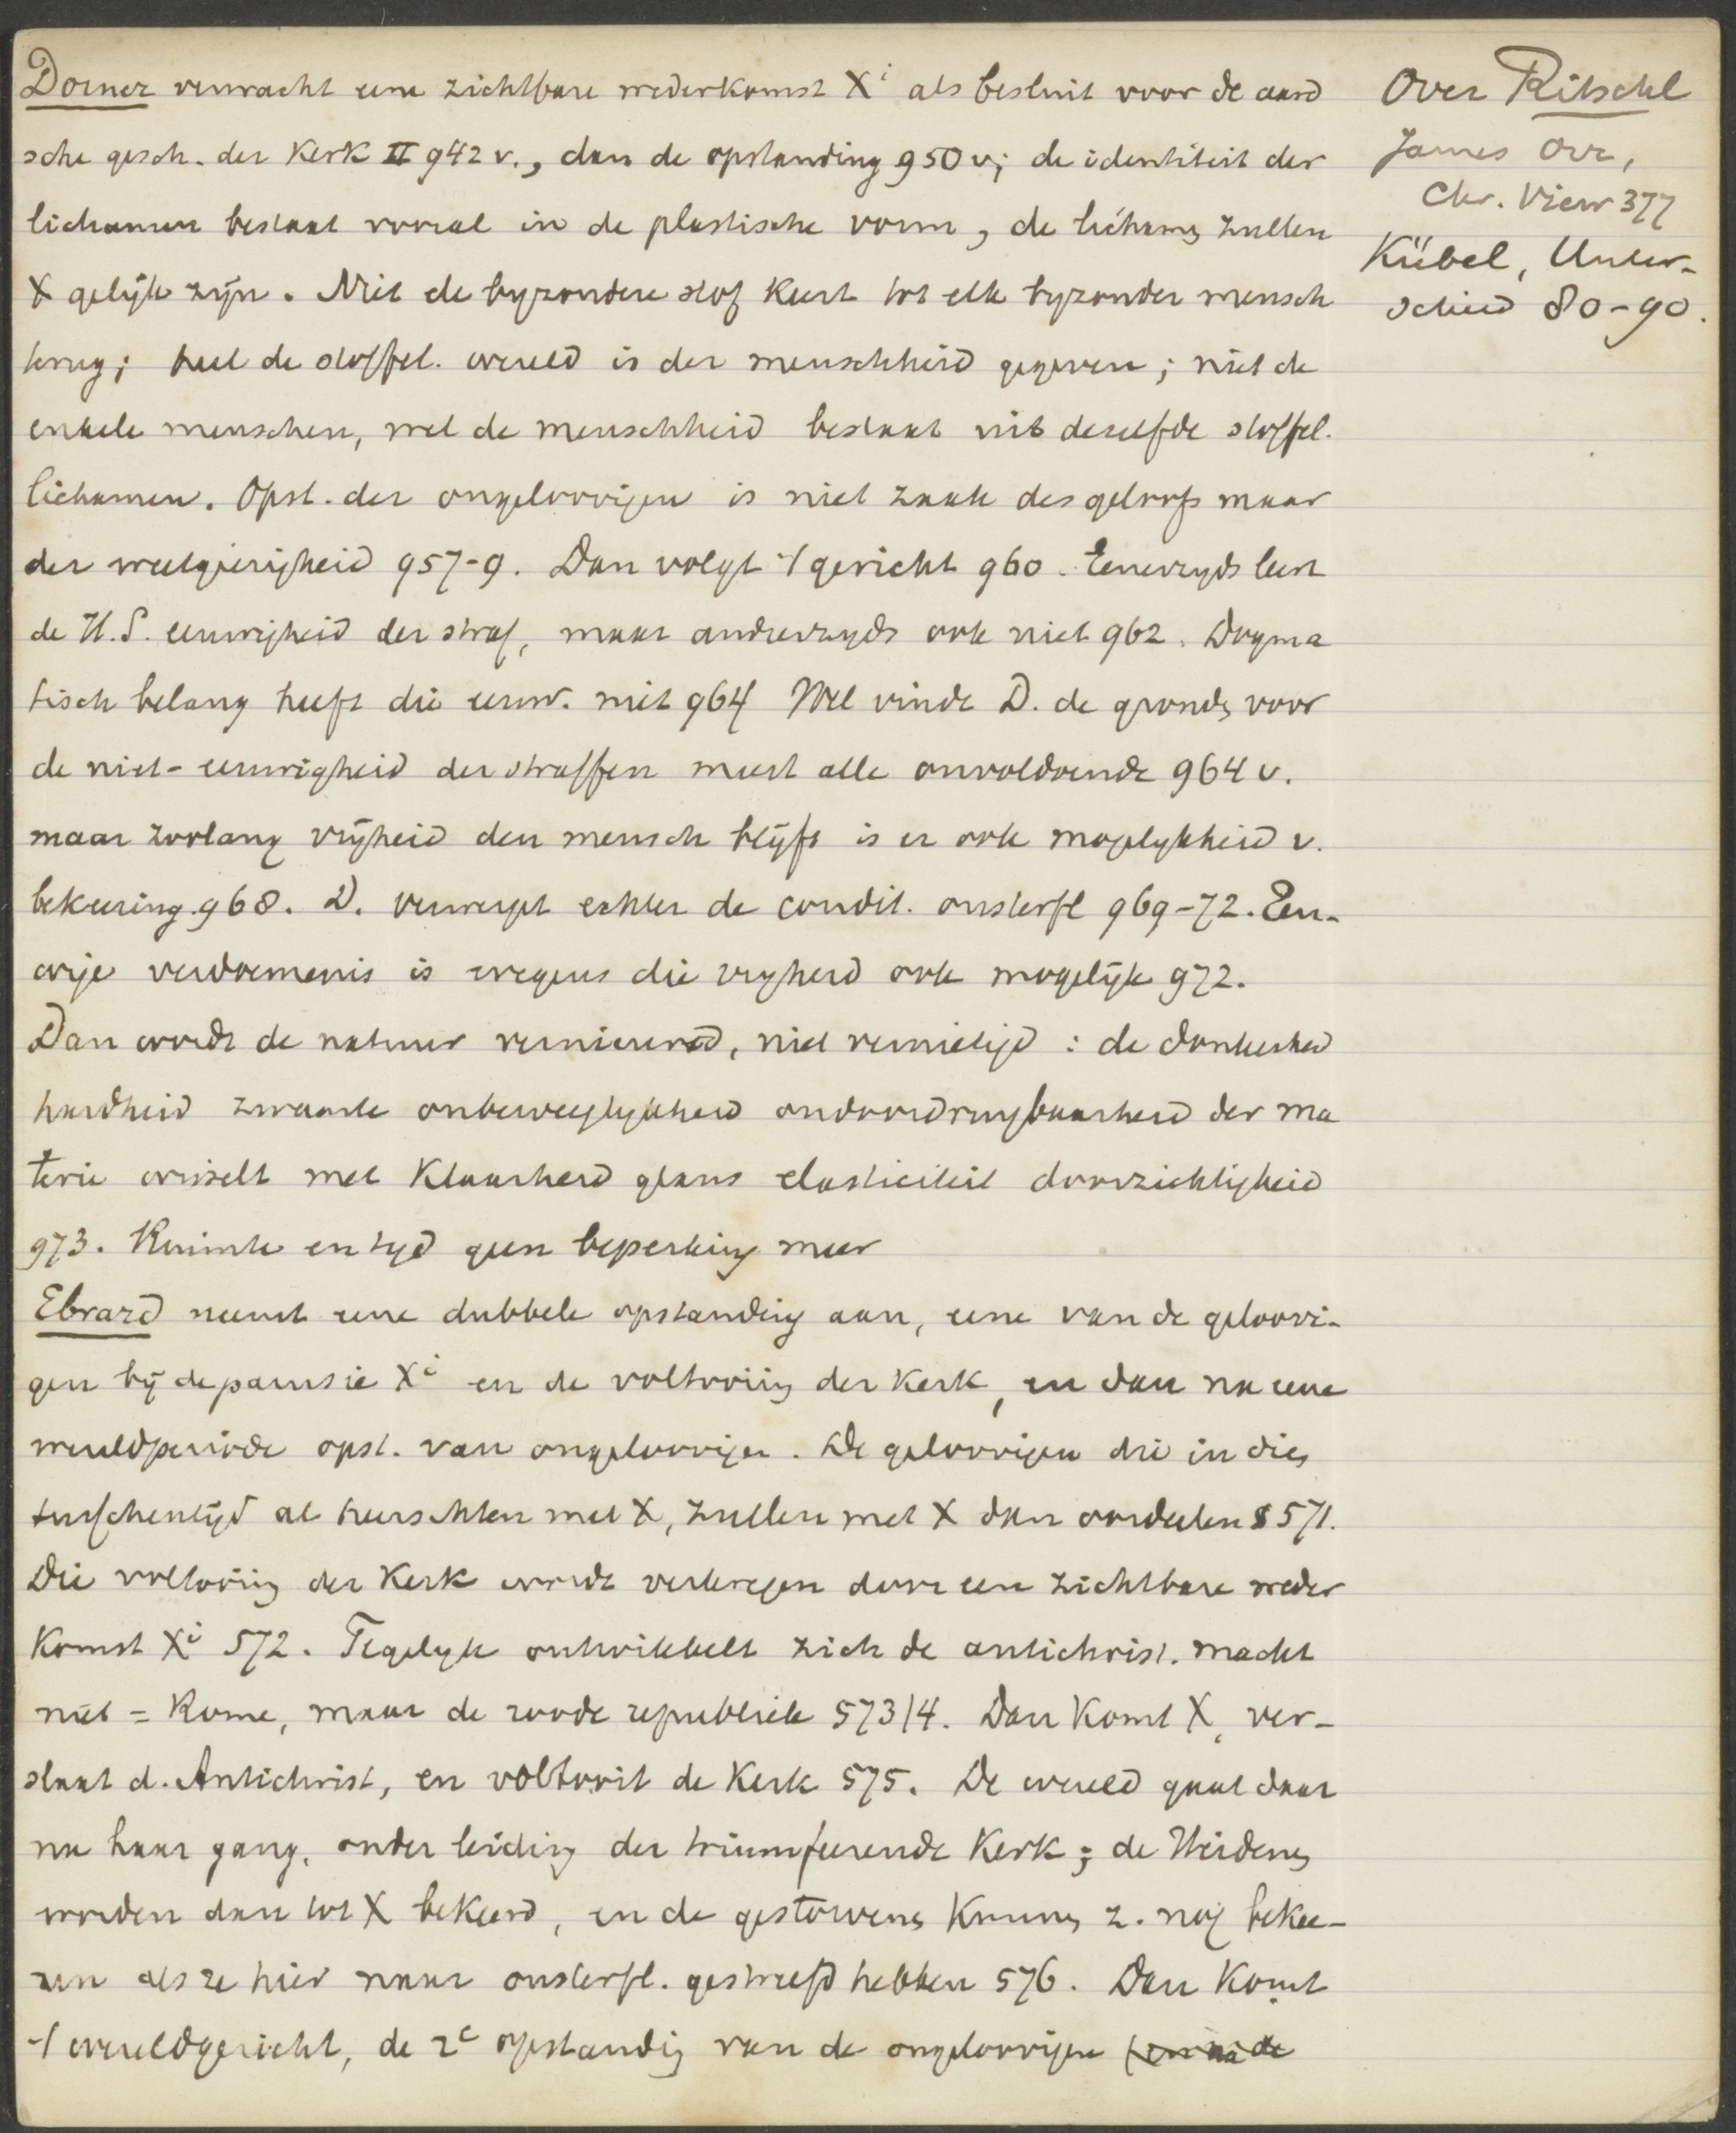 Dorner verwacht eene zichtbare wederkomst Xi als besluit voor de aard
sche gesch. der Kerk II 942 v., dan de opstanding 950 v; de identiteit der
lichamen bestaat vooral in de plastische vorm, de lichamen zullen
X gelijk zijn. Niet de byzondere stof keert tot elk byzonder mensch
terug; heel de stoffel. wereld is der menschheid gegeven; niet de
enkele menschen, wel de menschheid bestaat uit dezelfde stoffel.
lichamen. Opst. der ongeloovigen is niet zaak des geloofs maar
der weetgierigheid 957-9. Dan volgt 't gericht 960. Eenerzyds leert
de H.S. eeuwigheid der straf, maar anderzyds ook niet 962. Dogma
tisch belang heeft die eeuw. niet 964 Wel vindt D. de gronden voor
de niet-eeuwigheid der straffen meest alle onvoldoende 964 v.
maar zoolang vrijheid den mensch blijft is er ook mogelykheid v.
bekeering 968. D. verwerpt echter de condit. onsterfl 969-72. Eeu-
wige verdoemenis is wegens die vryheid ook mogelijk 972.
Dan wordt de natuur vernieuwd, niet vernietigd: de donkerheid
hardheid zwaarte onbeweeglykheid ondoordringbaarheid der ma
terie wisselt met Klaarheid glans elasticiteit doorzichtigheid
973. Ruimte en tyd geen beperking meer
Ebrard neemt eene dubbele opstanding aan, eene van de geloovi-
gen bij de parousie Xi en de voltooiing der Kerk, en dan na eene
wereldperiode opst. van ongeloovigen. De geloovigen die in dien
tusschentijd al heerschten met X, zullen met X dan oordeelen § 571.
Die voltooiing der Kerk wordt verkregen door een zichtbare weder
Komst Xi 572. Tegelyk ontwikkelt zich de antichrist. macht
niet = Rome, maar de roode republiek 573/4. Dan Komt X, ver-
slaat d. Antichrist, en voltooit de Kerk 575. De wereld gaat daar
na haar gang, onder leiding der triumfeerende Kerk; de Heidenen
worden dan tot X bekeerd, en de gestorvenen Kunnen z. nog bekee-
ren als ze hier naar onsterfl. gestreefd hebben 576. Dan Komt
't wereldgericht, de 2e opstanding van de ongeloovigen
Over Ritschl
James Orr,
Chr. View 377
Kübel, Unter-
schied 80-90.